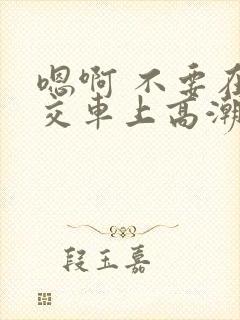 嗯啊 不要在
交车上高潮
段玉嘉